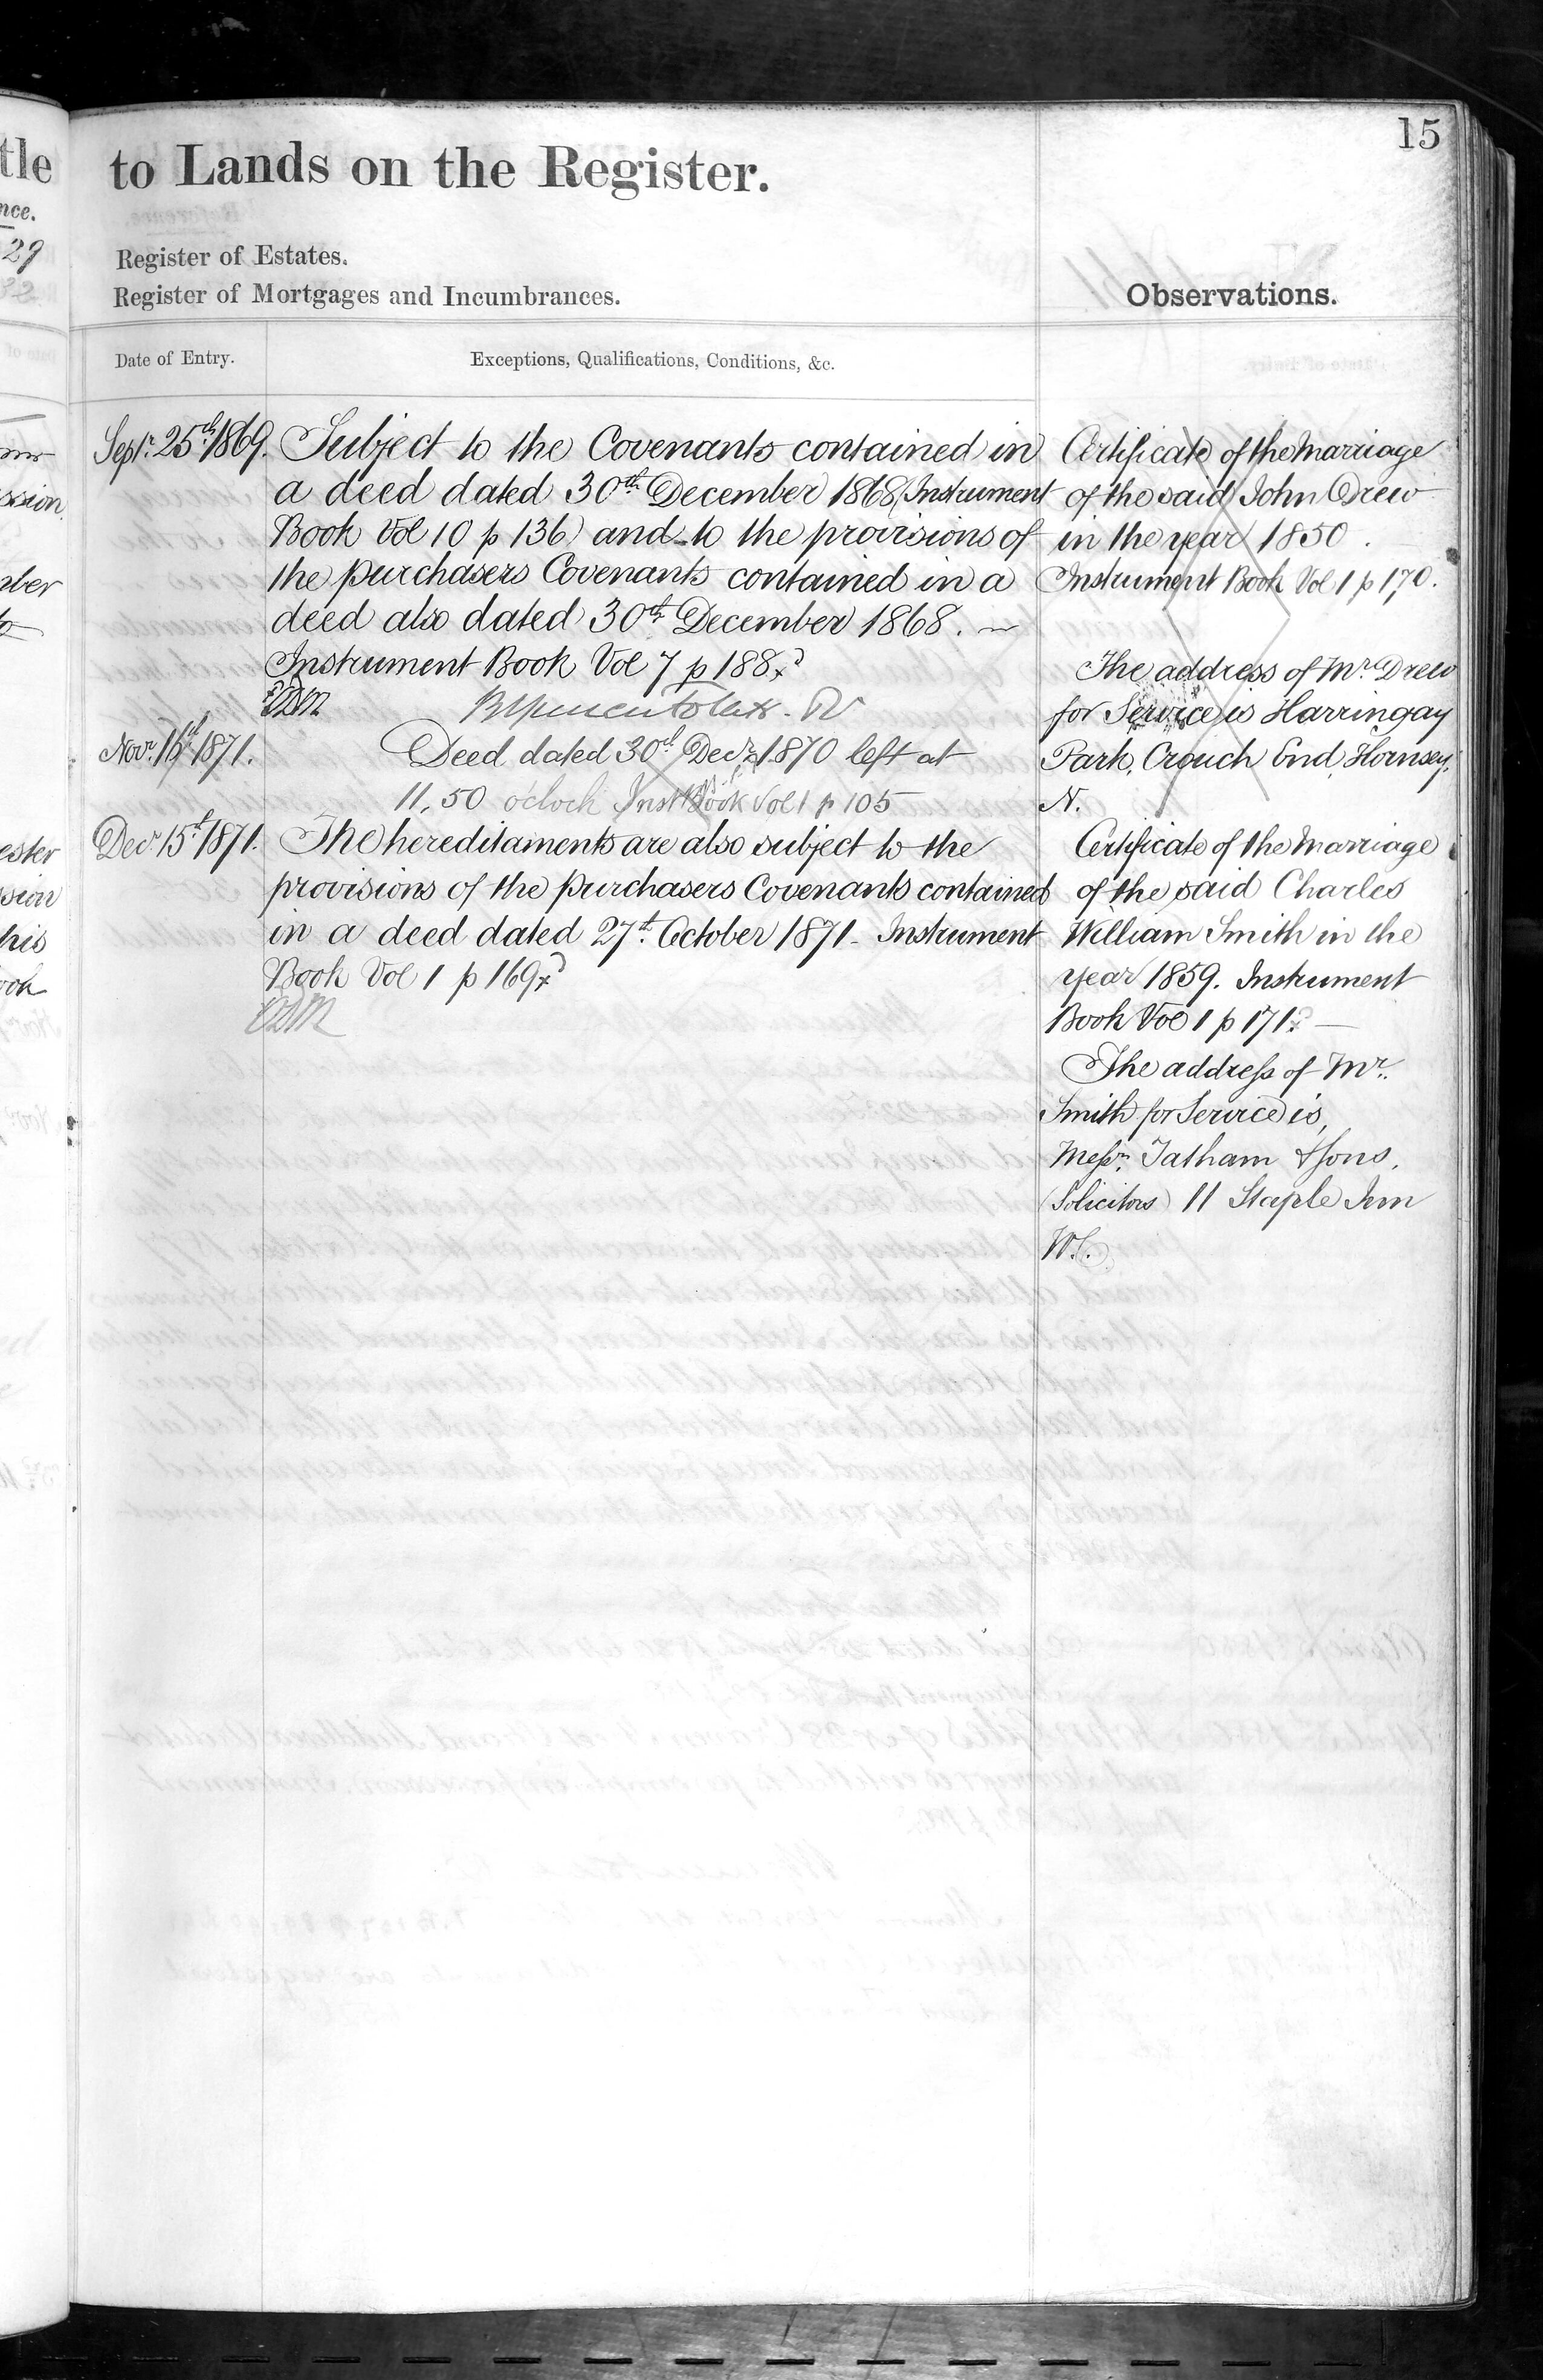 15
to Lands on the Register.
Register of Estates.
Register of Mortgages and Incumbrances.
Observations.
Date of Entry.
Exceptions, Qualifications, Conditions, &c.
Septr. 25th 1869.
Subject to the Covenants contained in
a deed dated 30th December 1868 (Instrument
Book Vol 10 p 136) and to the provisions of
the purchasers Covenants contained in a
deed also dated 30th December 1868. —
Instrument Book Vol 7 p 188
Novr. 15th 1871.
Deed dated 30th Decr 1870 left at
11,50 o'clock Inst Book Vol 1 p 105
Decr. 15th 1871.
The hereditaments are also subject to the
provisions of the purchasers Covenants contained
in a deed dated 27th October 1871 - Instrument
Book Vol 1 p 169
Certificate of the Marriage
of the said John Drew
in the year 1850.
Instrument Book Vol 1 p 170.
The address of Mr. Drew
for Service is Harringay
Park, Crouch End, Hornsey,
N.
Certificate of the Marriage
of the said Charles
William Smith in the
year 1859. Instrument
Book Vol 1 p 171. —
The address of Mr.
Smith for Service is,
Messrs. Tatham & Sons,
(Solicitors) 11 Staple Inn
W.C.